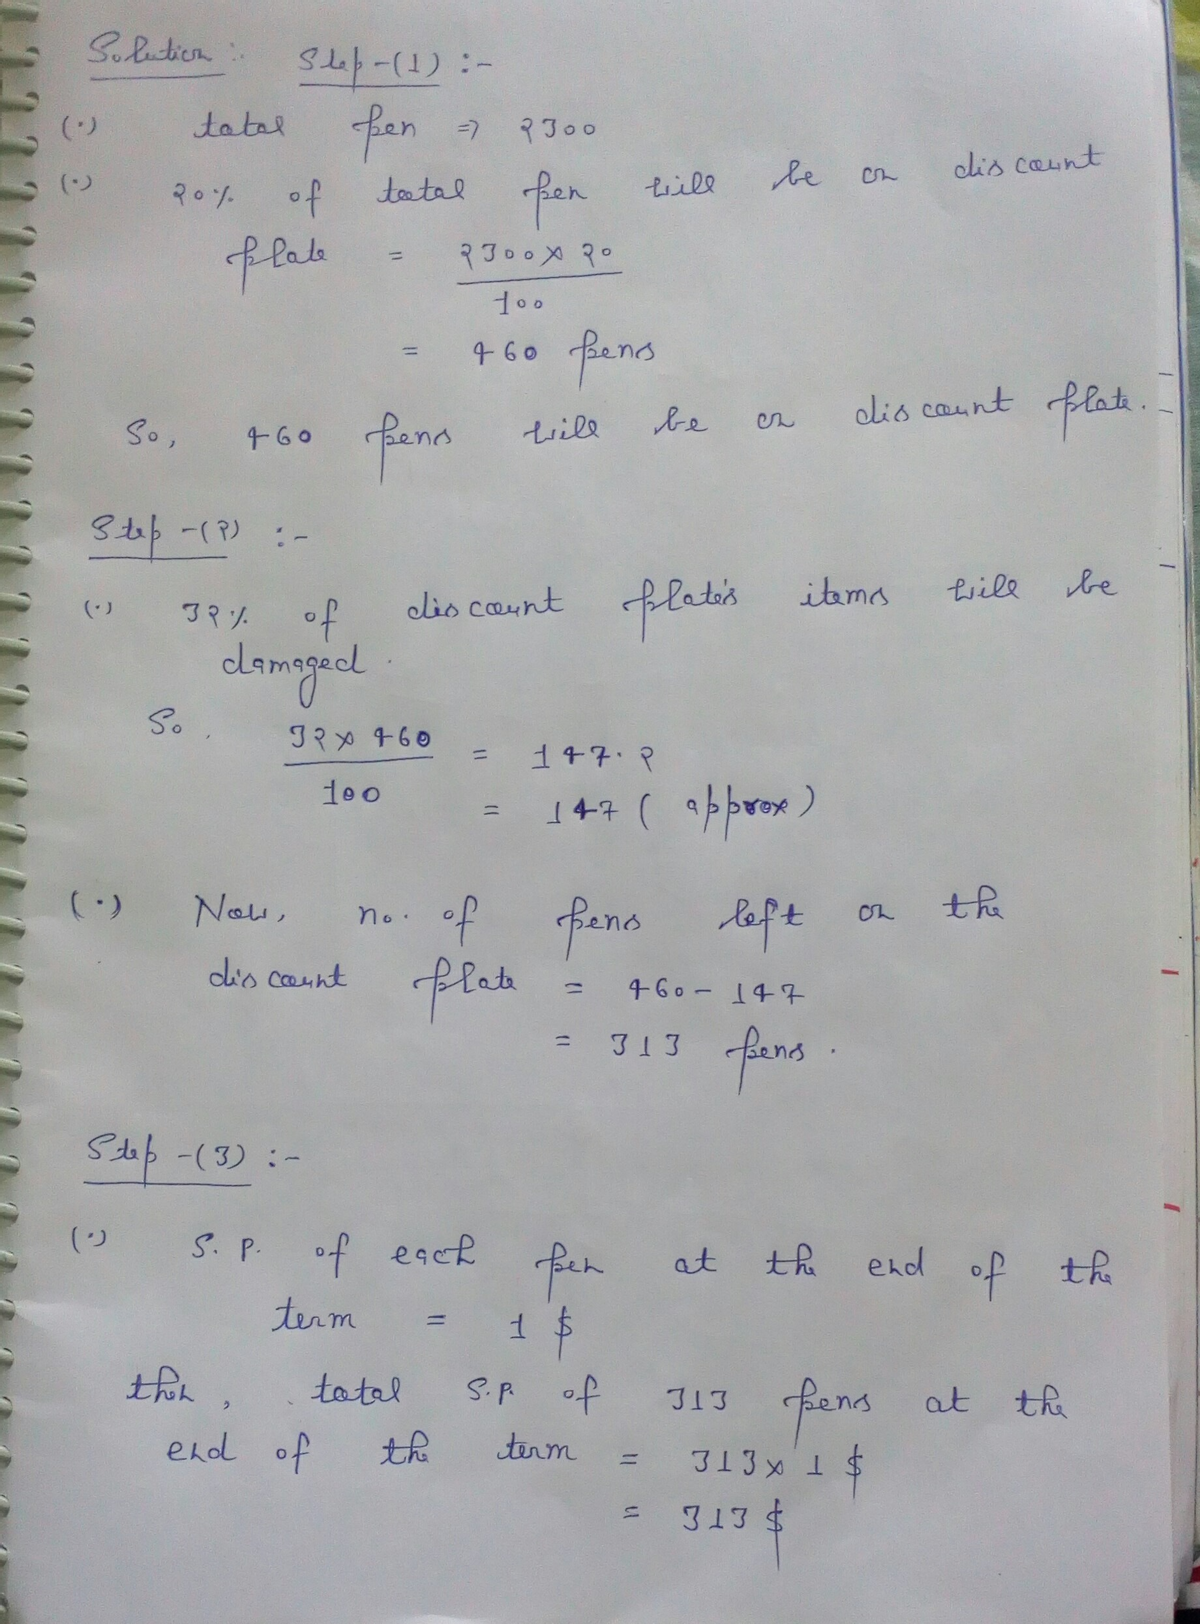 Solution :- Step-(1) :-
(·) total pen => 2300
(·) 20% of total pen will be on discount
plate = 2300 x 20
100
= 460 pens
So, 460 pens will be on discount plate.
Step-(2) :-
(·) 32% of discount plate's items will be
damaged.
So, 32 x 460 = 147.2
100
= 147 (approx)
(·) Now, no. of pens left on the
discount plate = 460 - 147
= 313 pens.
Step-(3) :-
(·) S.P. of each pen at the end of the
term = 1 $
then, total S.P. of 313 pens at the
end of the term = 313 x 1 $
= 313 $